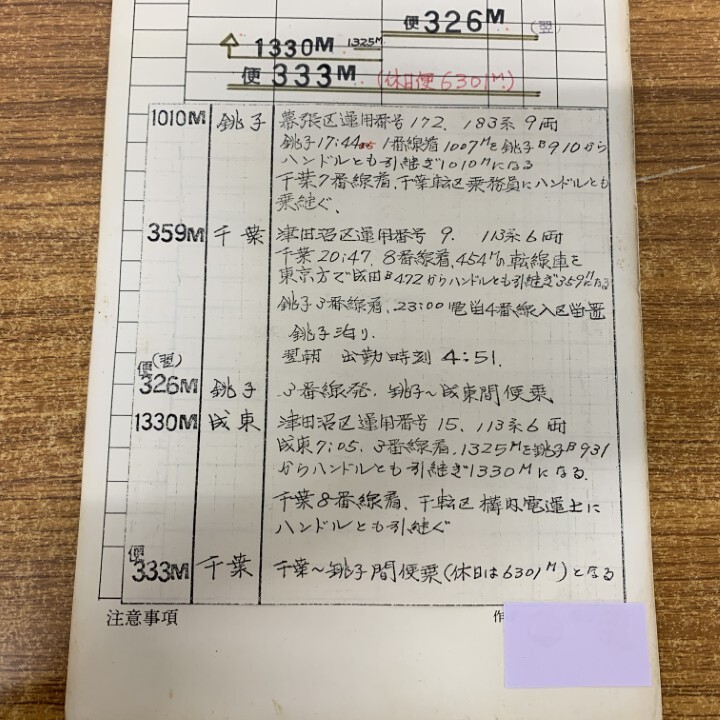 便326M (翌)
1330M 1325M
便333M (休日便6301M)
1010M 銚子 幕張区運用番号172. 183系9両
銚子17:44 1番線着1007Mを銚子B910から
ハンドルとも引継ぎ1010Mになる
千葉7番線着、千葉転区乗務員にハンドルとも
乗継ぐ、
359M 千葉 津田沼区運用番号 9. 113系6両
千葉20:47. 8番線着、454Mの転線車を
東京方で成田B472からハンドルとも引継ぎ359Mになる
銚子3番線着、23:00 電留4番線入区留置
銚子泊り.
翌朝 出勤時刻 4:51.
便(翌)
326M 銚子 3番線発、銚子～成東間便乗
1330M 成東 津田沼区運用番号 15. 113系6両
成東7:05. 3番線着、1325Mを銚子B931
からハンドルとも引継ぎ1330Mになる.
千葉8番線着、千転区 構内電運士に
ハンドルとも引継ぐ
便
333M 千葉 千葉～銚子間便乗(休日は6301M)となる
注意事項
作